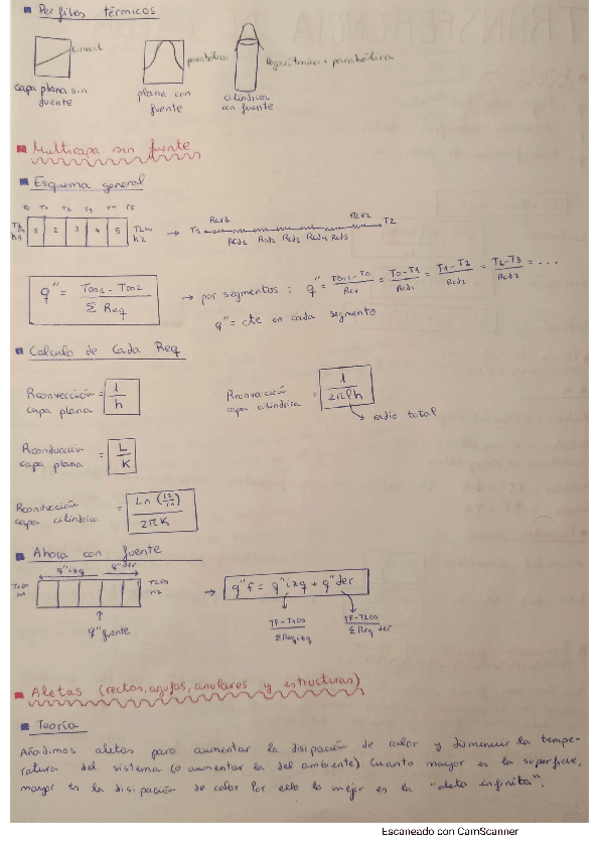 Perfiles térmicos
lineal
parabólica
logarítmica + parabólica
capa plana sin
fuente
plana con
fuente
cilíndrica
con fuente
Multicapa sin fuente
Esquema general
1 2 3 4 5
T∞1
h1
T2∞
h2
T1
Rcv1
Rcd1 Rcd2 Rcd3 Rcd4 Rcd5
Rcv2
T2
q" = T∞1 - T∞2 / Σ Req
→ por segmentos : q" = T∞1 - T0 / Rcv = T0 - T1 / Rcd1 = T1 - T2 / Rcd2 = T2 - T3 / Rcd3 = ...
q" = cte en cada segmento
Calculo de Cada Req
Rconvección capa plana = 1 / h
Rconvección capa cilíndrica = 1 / 2πrh
radio total
Rconducción capa plana = L / K
Rconducción capa cilíndrica = Ln (r2/r1) / 2πK
Ahora con fuente
q"izq q"der
T1∞
h1
T2∞
h2
q" fuente
→ q"f = q"izq + q"der
TF - T1∞ / ΣReq izq
TF - T2∞ / ΣReq der
Aletas (rectas, agujas, anulares y estructuras)
Teoría
Añadimos aletas para aumentar la disipación de calor y disminuir la tempe-
ratura del sistema (o aumentar la del ambiente) Cuanto mayor es la superficie,
mayor es la disipación de calor. Por ello lo mejor es la "aleta infinita".
Escaneado con CamScanner